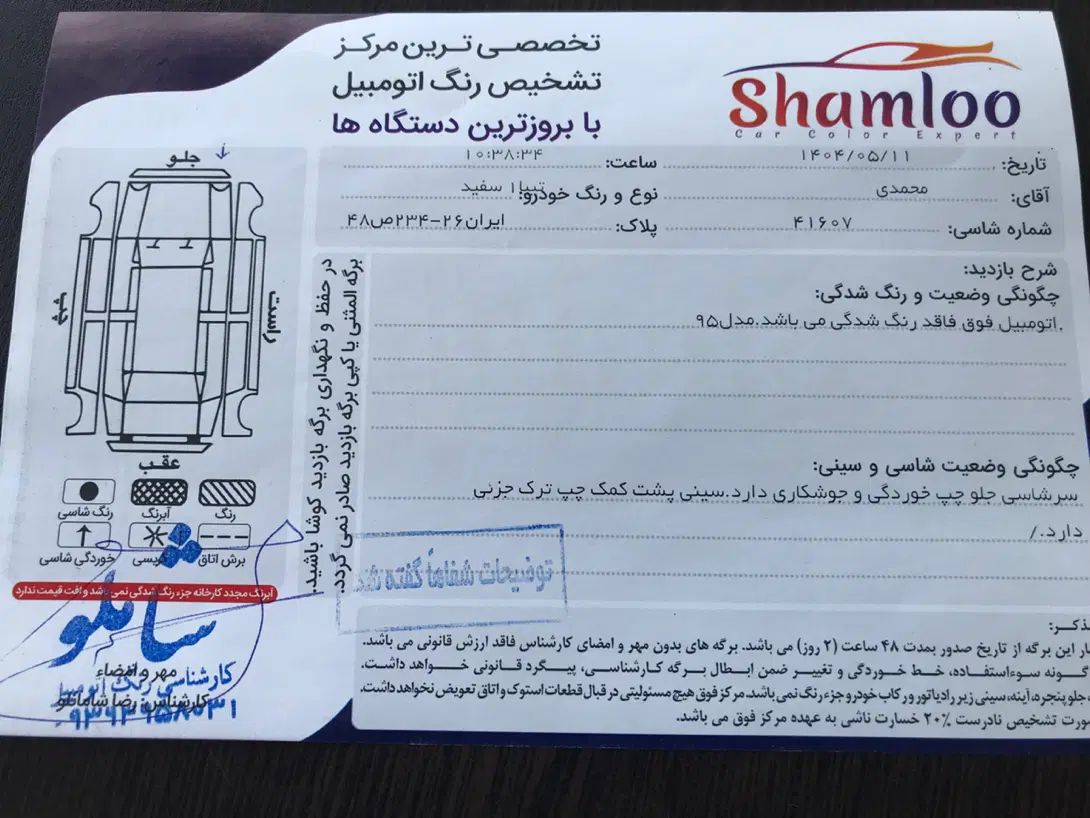 تخصصی ترین مرکز
تشخیص رنگ اتومبیل
با بروزترین دستگاه ها
Shamloo
Car Color Expert
تاریخ: ۱۴۰۴/۰۵/۱۱
ساعت: ۱۰:۳۸:۳۴
آقای: محمدی
نوع و رنگ خودرو: تیبا۱ سفید
شماره شاسی: ۴۱۶۰۷
پلاک: ایران۲۶-۲۳۴ص۴۸
شرح بازدید:
چگونگی وضعیت و رنگ شدگی:
اتومبیل فوق فاقد رنگ شدگی می باشد.مدل۹۵.
چگونگی وضعیت شاسی و سینی:
سرشاسی جلو چپ خوردگی و جوشکاری دارد.سینی پشت کمک چپ ترک جزئی
دارد./
توضیحات شفاها گفته شد
ذکر:
ار این برگه از تاریخ صدور بمدت ۴۸ ساعت (۲ روز) می باشد. برگه های بدون مهر و امضای کارشناس فاقد ارزش قانونی می باشد.
گونه سوءاستفاده، خط خوردگی و تغییر ضمن ابطال برگه کارشناسی، پیگرد قانونی خواهد داشت.
،جلوپنجره، آینه، سینی زیر رادیاتور و رکاب خودرو جزء رنگ نمی باشد. مرکز فوق هیچ مسئولیتی در قبال قطعات استوک و اتاق تعویض نخواهد داشت.
ورت تشخیص نادرست ۲۰٪ خسارت ناشی به عهده مرکز فوق می باشد.
برگه المثنی یا کپی برگه بازدید صادر نمی گردد.
در حفظ و نگهداری برگه بازدید کوشا باشید.
جلو
چپ
راست
عقب
رنگ
آبرنگ
رنگ شاسی
برش اتاق
خوردگی شاسی
آبرنگ مجدد کارخانه جزء رنگ شدگی نمی باشد و افت قیمت ندارد
شاملو
مهر و امضاء
کارشناسی رنگ اتومبیل
کارشناس: رضا شاملو